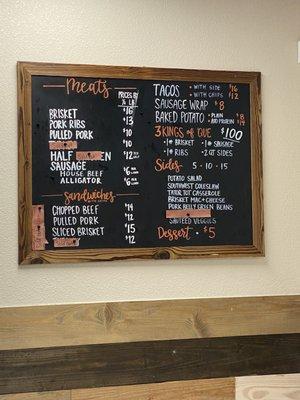 Meats
PRICES BY
½ LB
BRISKET $16
PORK RIBS $13
PULLED PORK $10
$10
HALF $12
SAUSAGE
HOUSE BEEF $6
ALLIGATOR $6
Sandwiches
CHOPPED BEEF $14
PULLED PORK $12
SLICED BRISKET $15
$12
TACOS • WITH SIDE $16
• WITH CHIPS $12
SAUSAGE WRAP $8
BAKED POTATO • PLAIN $8
• ADD PROTEIN $14
3 KINGS OF QUE $100
• 1# BRISKET • 1# SAUSAGE
• 1# RIBS • 2 QT SIDES
Sides 5 - 10 - 15
POTATO SALAD
SOUTHWEST COLESLAW
TATER TOT CASSEROLE
BRISKET MAC & CHEESE
PORK BELLY GREEN BEANS
SAUTEED VEGGIES
Dessert • $5